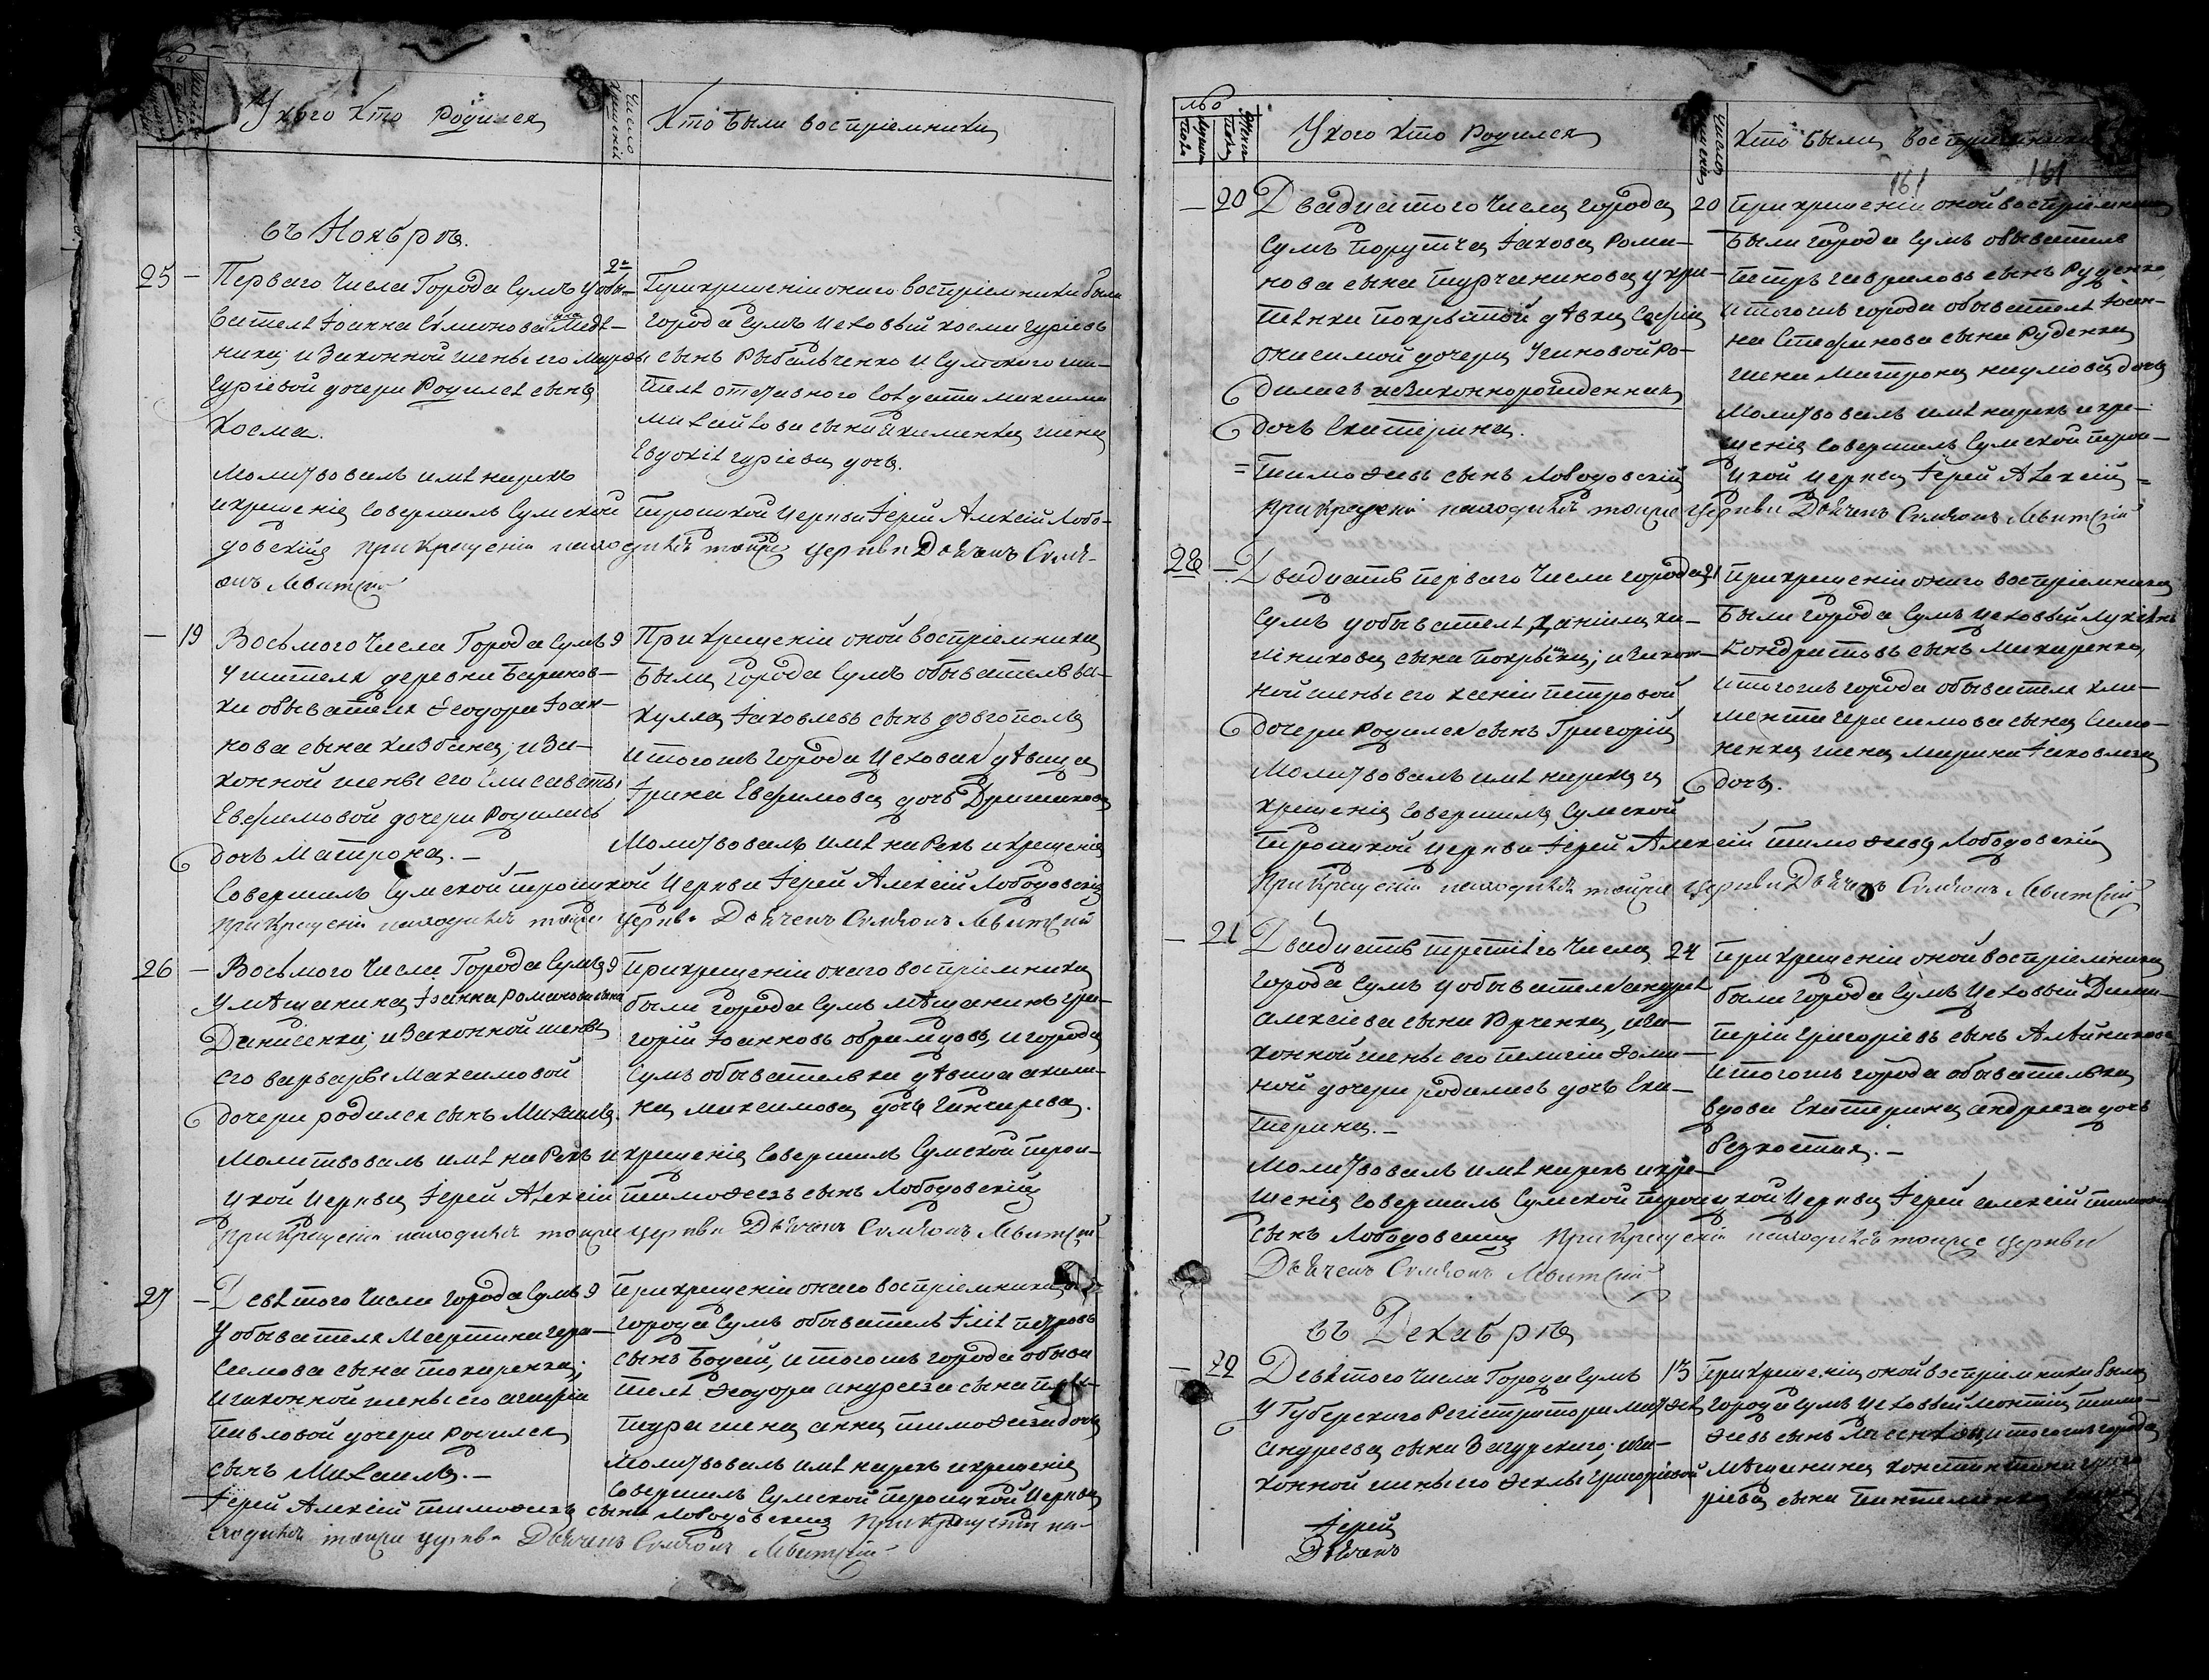 У кого кто родился
Число крещенія
Кто были воспріемники
въ Ноябрѣ.
25 — Перваго числа Города Сумъ у обы-
вателя Іоанна Симионова сына Медв-
ника; и законной жены его Мавры
Гуріевой дочери родился сынъ
Косма.
2г
При крещеніи онаго воспріемники были
города Сумъ цеховый косма гуріевъ
сынъ Рыбальченко и Сумского жи-
теля отставного солдата максима
михайлова сына Якименка жена
Евдокія гуріева дочь.
Молитвовалъ имя нарекъ
и крещеніе совершилъ Сумской Троицкой церкви Іерей Алексій Лобо-
довскій при крещеніи находился тояже церкви Дьячекъ Симеонъ
Левитскій
— 19 Восьмого числа Города Сумъ
жителя деревни Баранов-
ки обывателя Ѳеодора Іоан-
нова сына ; и за-
конной жены его Елисаветы
Евфимовой дочери родилась
дочь Матрона. —
9 При крещеніи оной воспріемники
были города Сумъ обыватель ва-
кулла Іаковлевъ сынъ довгополъ
и тогожъ города цеховая дѣвица
Ірина Евфимова дочь
Молитвовалъ имя нарекъ и крещеніе
совершилъ Сумской троицкой церкви Іерей Алексій Лободовскій
при крещеніи находился тояже церкви Дьячекъ Симеонъ Левитскій
26 — Восьмого числа Города Сумъ
у мѣщанина Іоанна Романова сына
Даниленка; и законной жены
его варвары Максимовой
дочери родился сынъ Михаилъ.
9 При крещеніи онаго воспріемники
были города Сумъ мѣщанинъ гри-
горій Іоанновъ , и города
Сумъ обывателька дѣвица акили-
на максимова дочь .
Молитвовалъ имя нарекъ и крещеніе совершилъ Сумской трои-
цкой церкви Іерей Алексій тимоѳеевъ сынъ Лободовскій
при крещеніи находился тояже церкви Дьячекъ Симеонъ Левитскій
27 — Девятого числа города Сумъ
у обывателя Мартина гера-
симова сына токаренка;
и законной жены его агафіи
Павловой дочери родился
сынъ Михаилъ. —
9 При крещеніи онаго воспріемники
города Сумъ обыватель Ілія петровъ
сынъ , и тогожъ города обыва
теля Ѳеодора андреева сына
жена анна тимоѳеева дочь
Молитвовалъ имя нарекъ и крещеніе
совершилъ Сумской троицкой церкви
Іерей Алексій тимоѳеевъ сынъ лободовскій при крещеніи на-
ходился тояже церкви Дьячекъ Симеонъ Левитскій
У кого кто родился
Число крещенія
Кто были воспріемники
161 161
— 20 Двадцатого числа города
Сумъ порутчка Іакова рома-
нова сына Турчанинова у кри-
покрытой дѣвки Софіи
онисимой дочери ро-
дилась незаконнорожденная
дочь Екатерина.
20 При крещеніи оной воспріемники
были города Сумъ обыватель
петръ гавриловъ сынъ Руденко,
и тогожъ города обывателя Іоан-
на Стефанова сына Руденка
жена матрона наумова дочь
Молитвовалъ имя нарекъ и кре-
щеніе совершилъ Сумской трои-
цкой церкви Іерей Алексій =
= тимоѳеевъ сынъ лободовскій
при крещеніи находился тояже церкви Дьячекъ Симеонъ Левитскій
28 — Двадцать перваго числа города
Сумъ у обывателя даніила ка-
линикова сына ; и закон-
ной жены его ксеніи петровой
дочери родился сынъ Григорій
21 при крещеніи онаго воспріемники
были города Сумъ цеховый
Кондратовъ сынъ макаренко,
и тогожъ города обывателя кли-
мента герасимова сына Симо-
ненка жена марина Іаковлева
дочь.
Молитвовалъ имя нарекъ и
крещеніе совершилъ Сумской
троицкой церкви Іерей Алексій тимоѳеевъ Лободовскій
при крещеніи находился тояже церкви Дьячекъ Симеонъ Левитскій
— 21 Двадцать третіего числа
города Сумъ у обывателя андрея
алексіева сына Юрченка, и за-
конной жены его пелагіи ѳоми-
ной дочери родилась дочь Ека-
терина. —
24 при крещеніи оной воспріемники
были города Сумъ цеховый Дими-
трій григоріевъ сынъ Алейниковъ
и тогожъ города обывателька
вдова Екатерина андреева дочь
. —
Молитвовалъ имя нарекъ и кре-
щеніе совершилъ Сумской троицкой церкви Іерей алексій
сынъ Лободовскій при крещеніи находился тояже церкви
Дьячекъ Симеонъ Левитскій
въ Декабрѣ
— 22 Девятого числа Города Сумъ
у Губерского Регістратора
андреева сына Загурского; и за-
конной жены его Ѳеклы григоріевой
13 При крещеніи оной воспріемники были
города Сумъ цеховый тимо-
ѳеевъ сынъ и тогожъ города
мѣщанина константина григо
ріева сына
Іерей
Дьячекъ